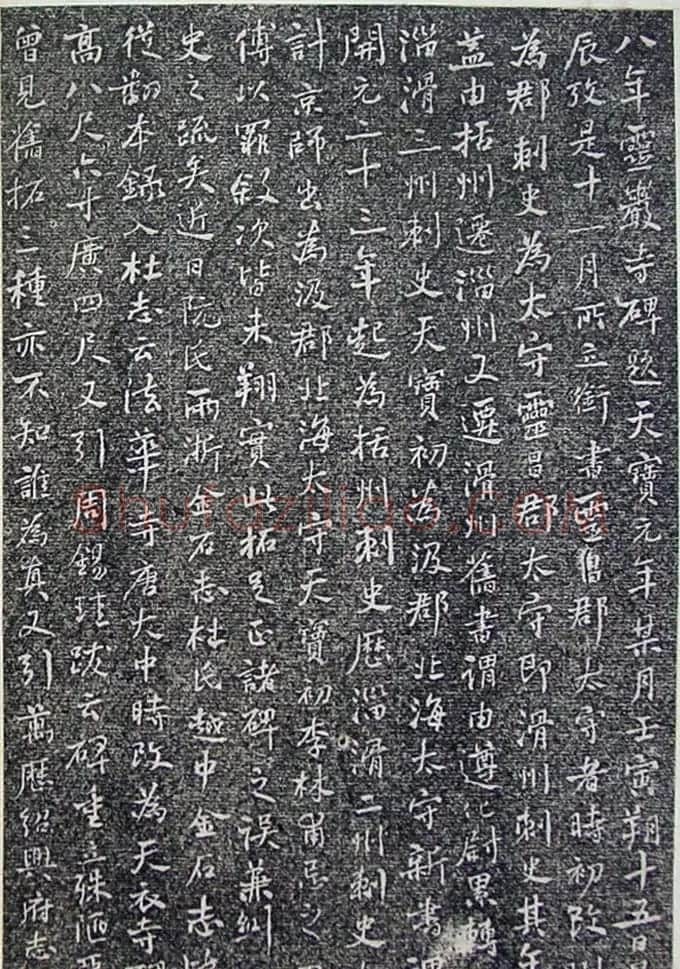 八年靈巖寺碑題天寶元年某月壬寅朔十五日
辰攷是十一月所立銜書靈昌郡太守者時初改州
為郡刺史為太守靈昌郡太守即滑州刺史其年
蓋由括州遷淄州又遷滑州舊書謂由遵化尉累轉
淄滑三州刺史天寶初為汲郡北海太守新書謂
開元二十三年起為括州刺史歷淄滑二州刺史
計京師出為汲郡北海太守天寶初李林甫忌之
傅以罪敘次皆未翔實此拓足正諸碑之誤兼糾
史之疏矣近日阮氏兩浙金石志杜氏越中金石志皆
從翻本錄入杜志云法華寺唐大中時改為天衣寺碑
高八尺六寸廣四尺又引周錫珪跋云碑重立殊
曾見舊拓二種亦不知誰為真又引萬歷紹興府志
shufaziliao.COM